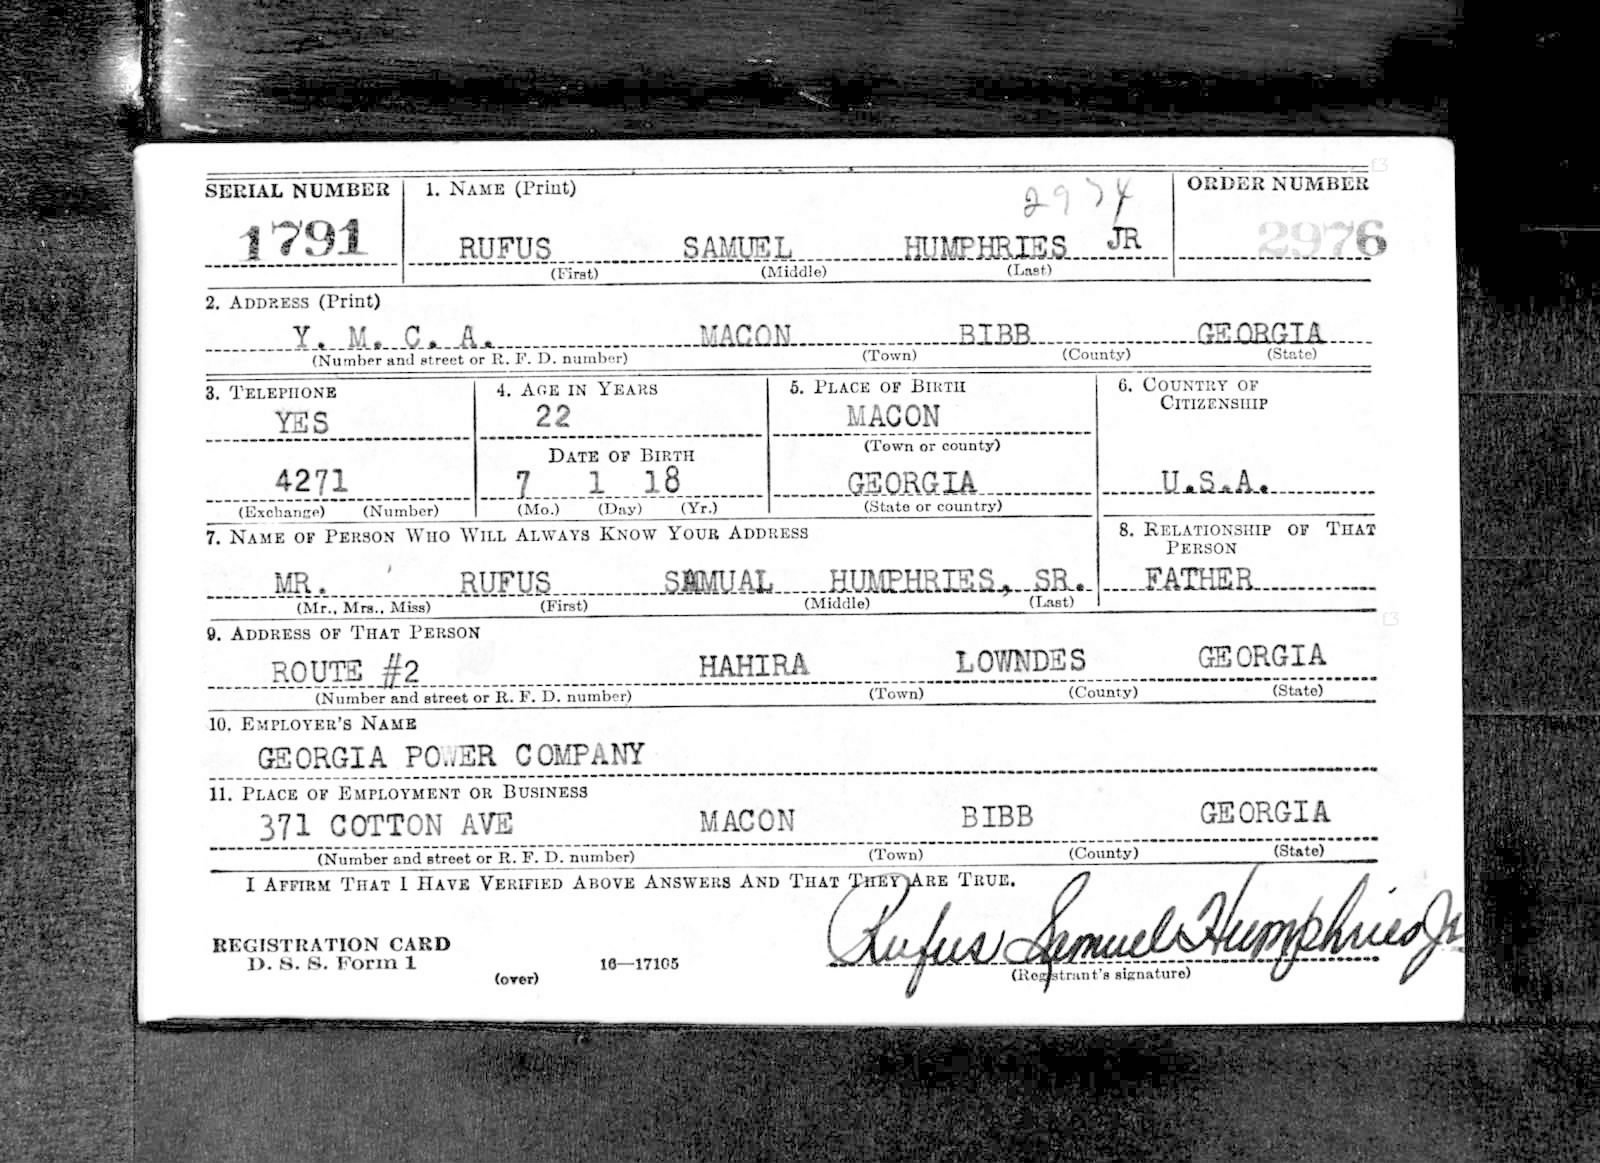 SERIAL NUMBER 1. NAME (Print) 2974 ORDER NUMBER
1791 RUFUS SAMUEL HUMPHRIES JR 2976
(First) (Middle) (Last)
2. ADDRESS (Print)
Y. M. C. A. MACON BIBB GEORGIA
(Number and street or R. F. D. number) (Town) (County) (State)
3. TELEPHONE 4. AGE IN YEARS 5. PLACE OF BIRTH 6. COUNTRY OF
CITIZENSHIP
YES 22 MACON
(Town or county)
DATE OF BIRTH
4271 7 1 18 GEORGIA U.S.A.
(Exchange) (Number) (Mo.) (Day) (Yr.) (State or country)
7. NAME OF PERSON WHO WILL ALWAYS KNOW YOUR ADDRESS 8. RELATIONSHIP OF THAT
PERSON
MR. RUFUS SAMUAL HUMPHRIES, SR. FATHER
(Mr., Mrs., Miss) (First) (Middle) (Last)
9. ADDRESS OF THAT PERSON
ROUTE #2 HAHIRA LOWNDES GEORGIA
(Number and street or R. F. D. number) (Town) (County) (State)
10. EMPLOYER'S NAME
GEORGIA POWER COMPANY
11. PLACE OF EMPLOYMENT OR BUSINESS
371 COTTON AVE MACON BIBB GEORGIA
(Number and street or R. F. D. number) (Town) (County) (State)
I AFFIRM THAT I HAVE VERIFIED ABOVE ANSWERS AND THAT THEY ARE TRUE.
Rufus Samuel Humphries Jr
REGISTRATION CARD
D. S. S. Form 1 16—17105
(over) (Registrant's signature)